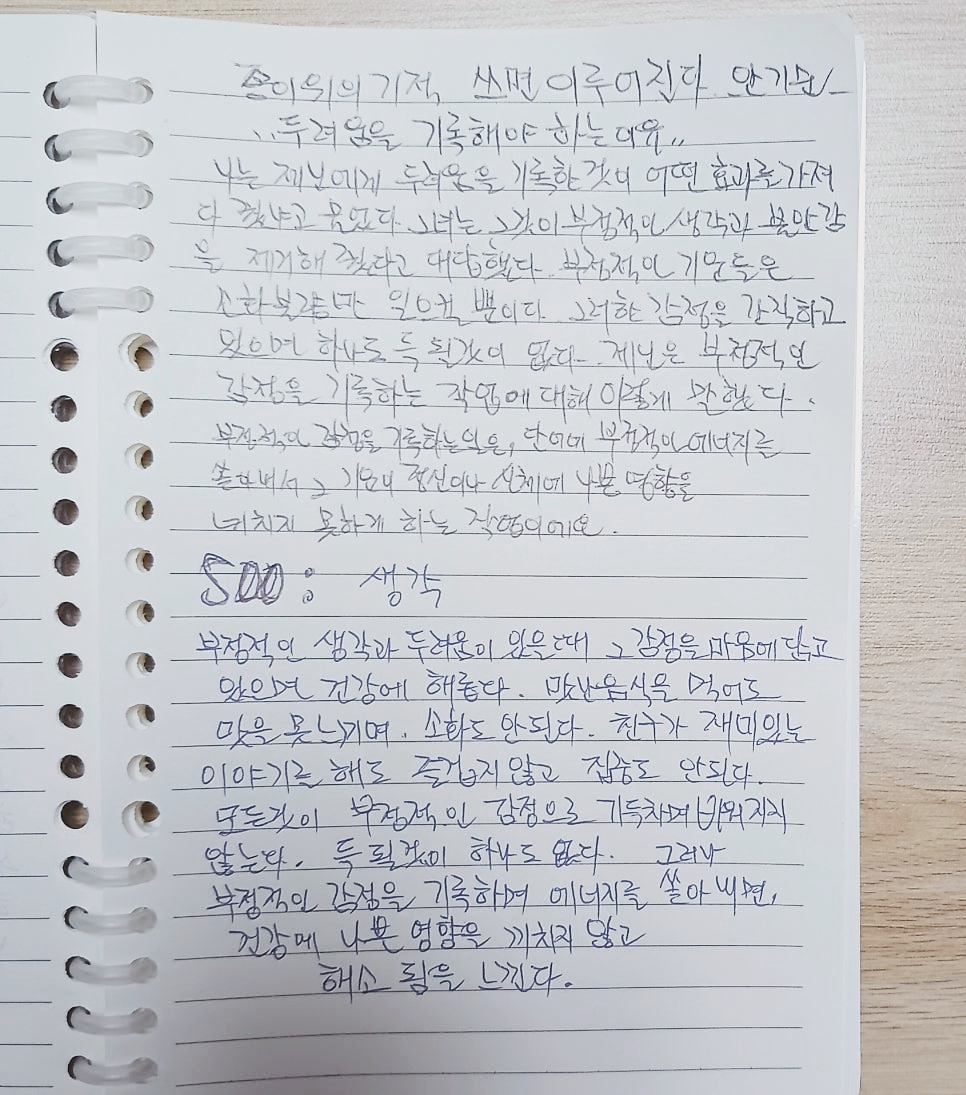 종이위의기적, 쓰면이루어진다 안기순
"두려움을 기록해야 하는 이유"
나는 제닌에게 두려움을 기록한것이 어떤 효과를 가져
다 줬냐고 물었다. 그녀는 그것이 부정적인 생각과 불안감
을 제거해 줬다고 대답했다. 부정적인 기운들은
소화불량만 일으킬 뿐이다. 그러한 감정을 간직하고
있으며 하나도 득 될것이 없다. 제닌은 부정적인
감정을 기록하는 작업에 대해 이렇게 말했다.
부정적인 감정을 기록하는일은, 단어에 부정적인에너지를
쏟아내서 그 기운이 정신이나 신체에 나쁜 영향을
끼치지 못하게 하는 작업이에요.
SOO: 생각
부정적인 생각과 두려움이 있을때 그 감정을 마음에 담고
있으면 건강에 해롭다. 맛난음식을 먹어도
맛을 못느끼며. 소화도 안된다. 친구가 재미있는
이야기를 해도 즐겁지않고 집중도 안된다.
모든것이 부정적인 감정으로 가득차며 바뀌지지
않는다. 득 될것이 하나도 없다. 그러나
부정적인 감정을 기록하며 에너지를 쏟아내면,
건강에 나쁜 영향을 끼치지 않고
해소 됨을 느낀다.